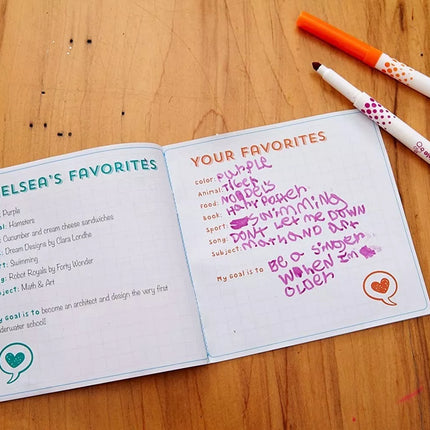 ELSEA'S FAVORITES
: Purple
al: Hamsters
: Cucumber and cream cheese sandwiches
: Dream Designs by Clara Londhe
rt: Swimming
g: Robot Royals by Forty Wonder
bject: Math & Art
y Goal is to become an architect and design the very first
derwater school!
YOUR FAVORITES
Color: purple
Animal: Tiger
Food: Noodels
Book: Hary Poster
Sport: Swimming
Song: Dont Let me DOWN
Subject: Math AND art
My Goal is to Be a Singer
WOhen Im
Older